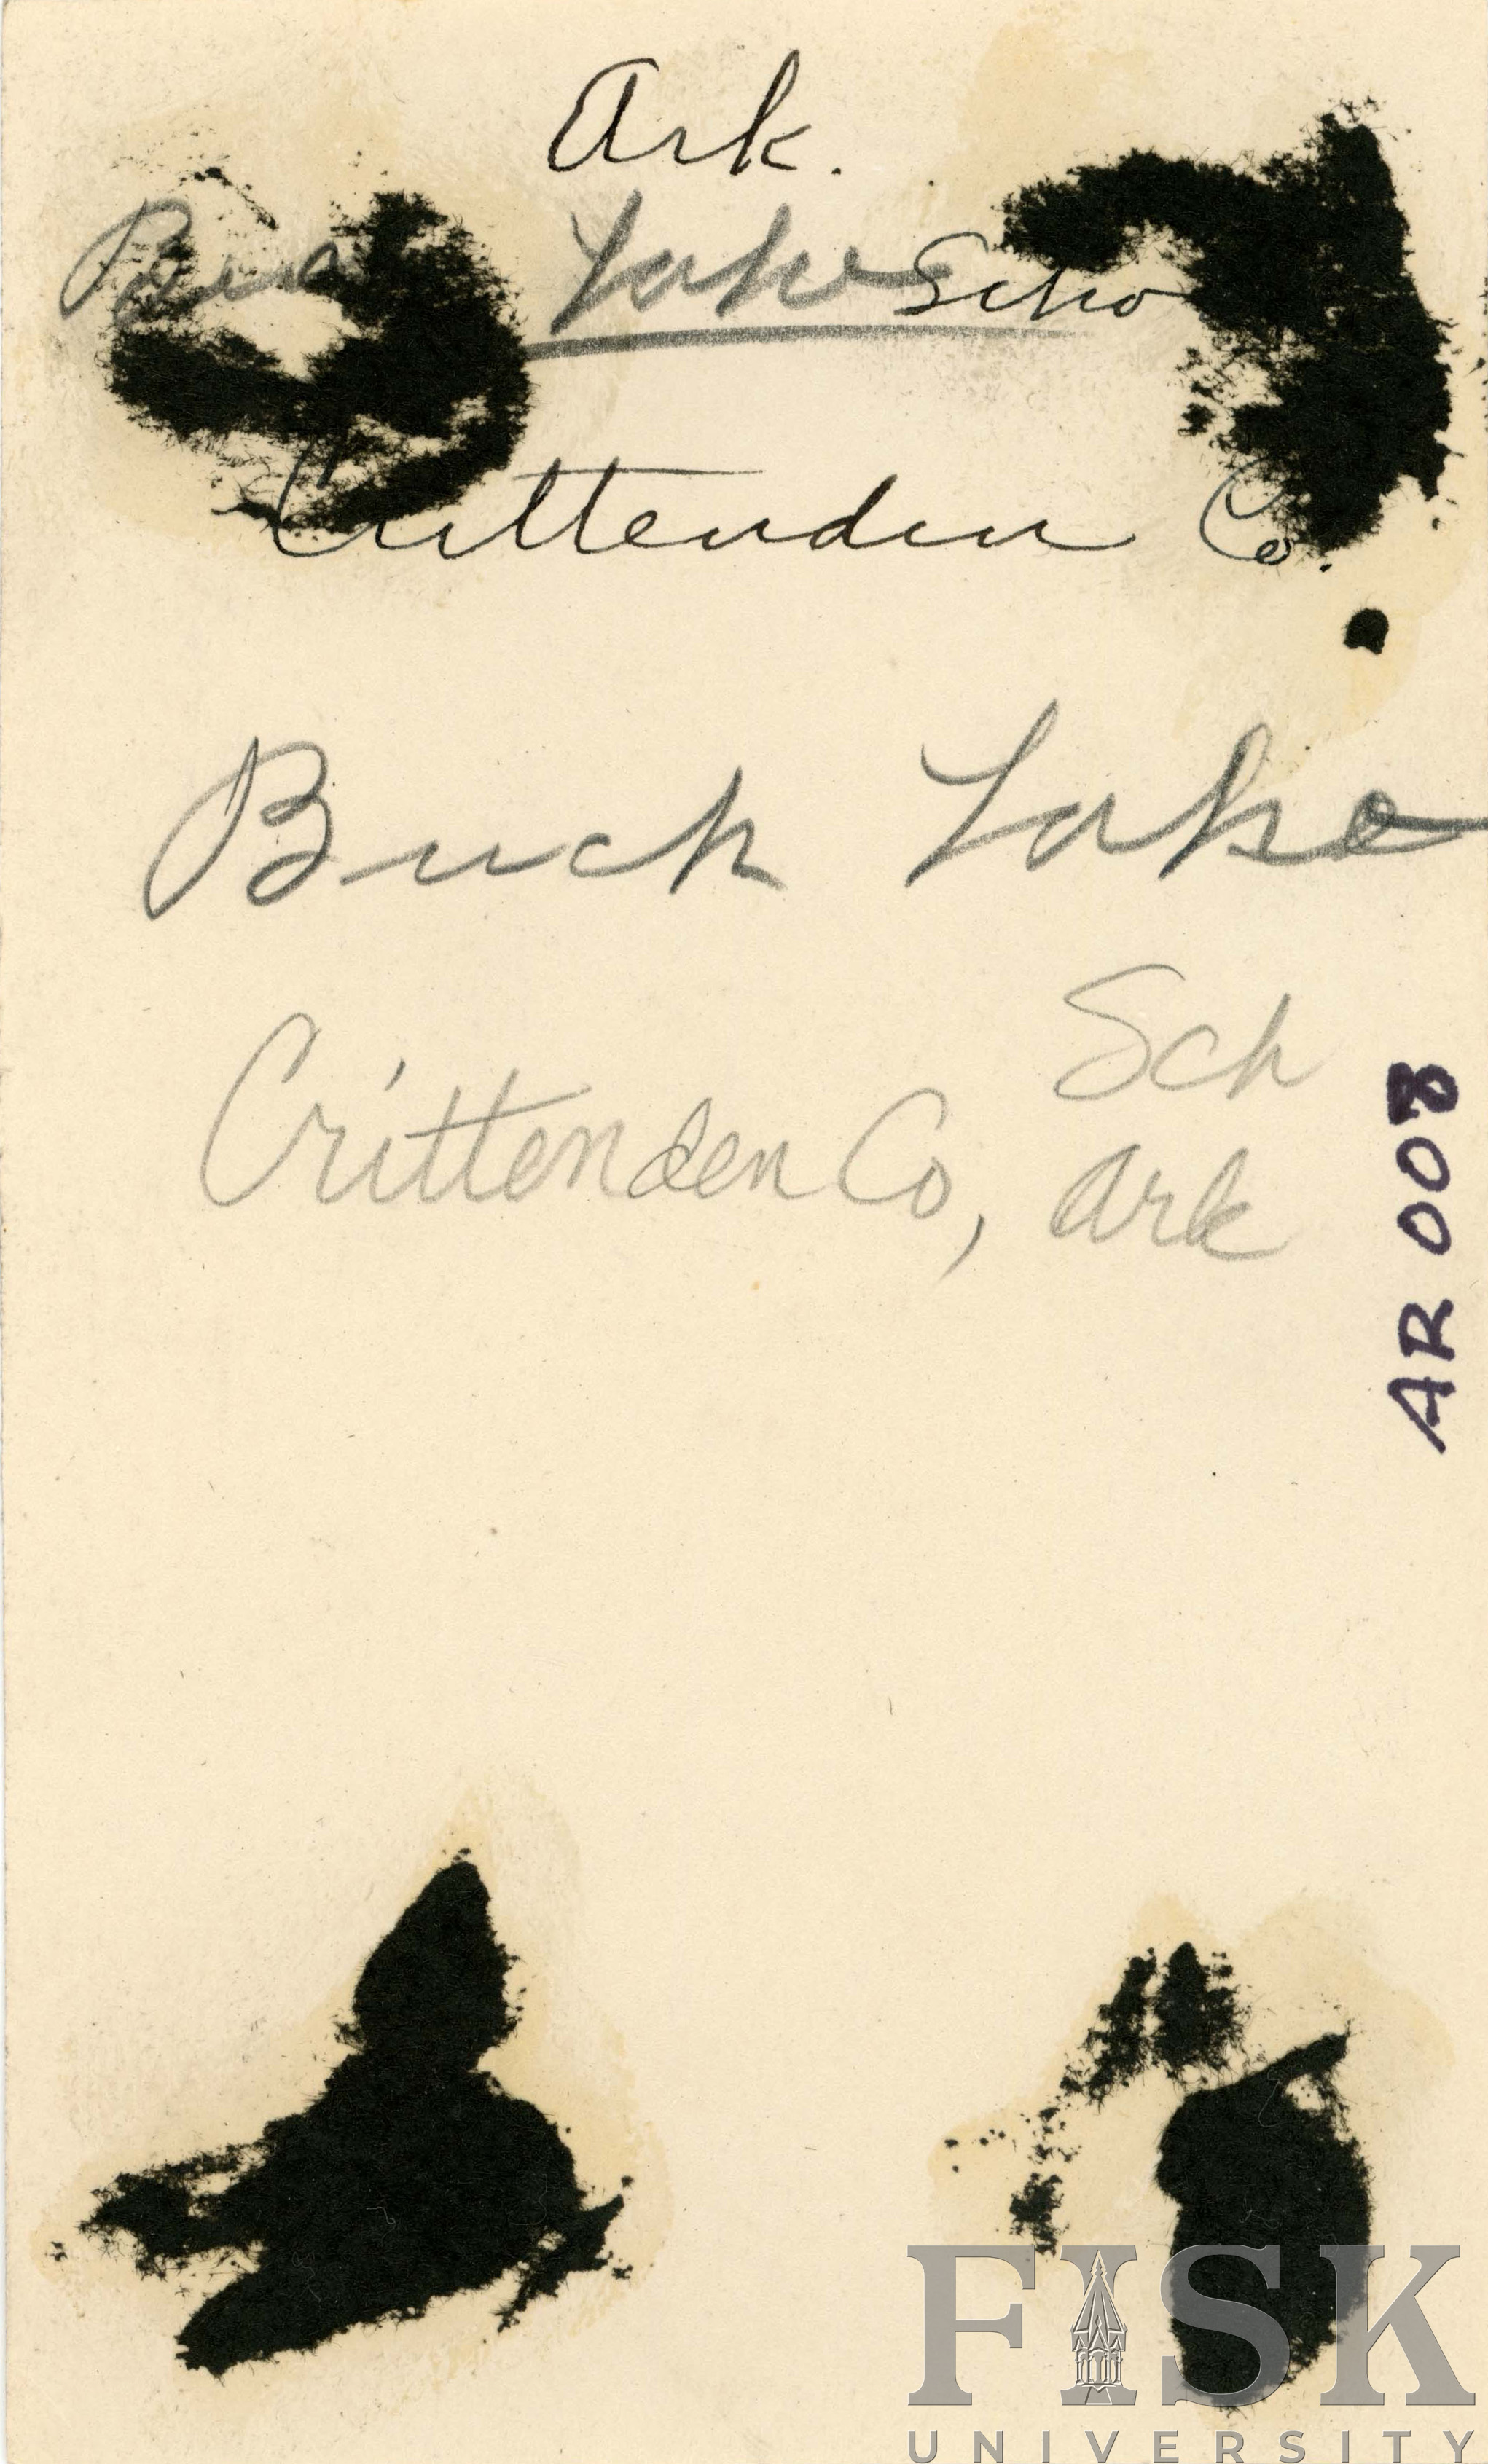 Ark.
Buck Lake Scho
Crittenden Co.
Buck Lake
Sch
Crittenden Co, Ark
AR 008
FISK
UNIVERSITY